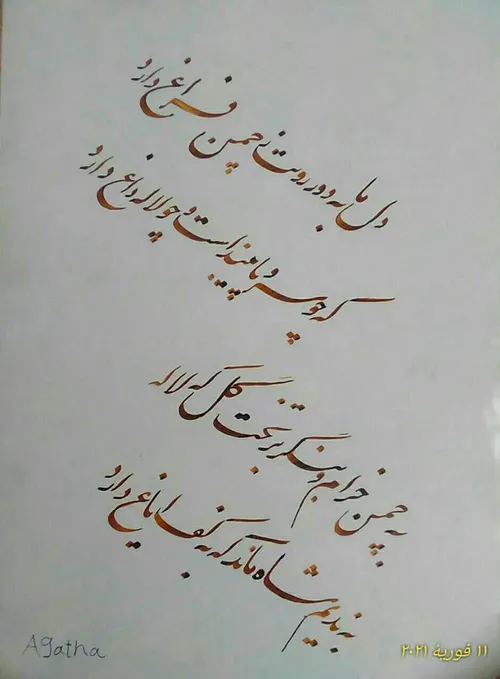 دل ما به دور رویت ز چمن فراغ دارد
که چو سرو پایبند است و چو لاله داغ دارد
به چمن خرام و بنگر بر تخت گل که لاله
به ندیم شاه ماند که به کف ایاغ دارد
Agatha
۱۱ فوریهٔ ۲۰۲۱